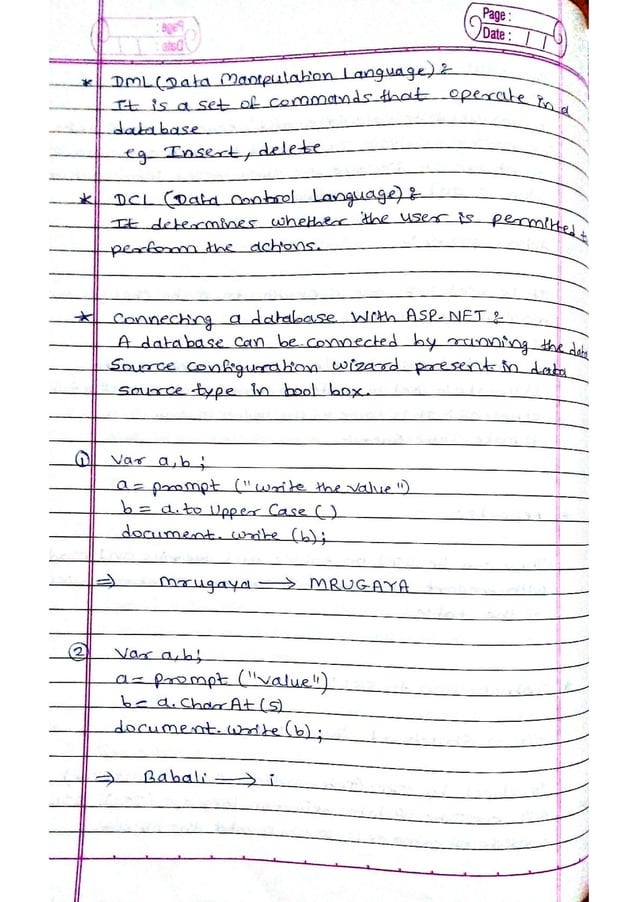 Page :
Date :
* DML (Data Manipulation Language) :
It is a set of commands that operate in a
database
eg Insert, delete
* DCL (Data Control Language) :
It determines whether the user is permitted t
perform the actions.
* Connecting a database With ASP.NET :
A database can be connected by running the data
Source configuration wizard present in data
source type in tool box.
① Var a,b ;
a = prompt ("write the value")
b = a.to Upper Case ( )
document. write (b);
⇒ Mrugaya → MRUGAYA
② Var a,b;
a = prompt ("value")
b = a.CharAt (5)
document. write (b) ;
⇒ Babali → i